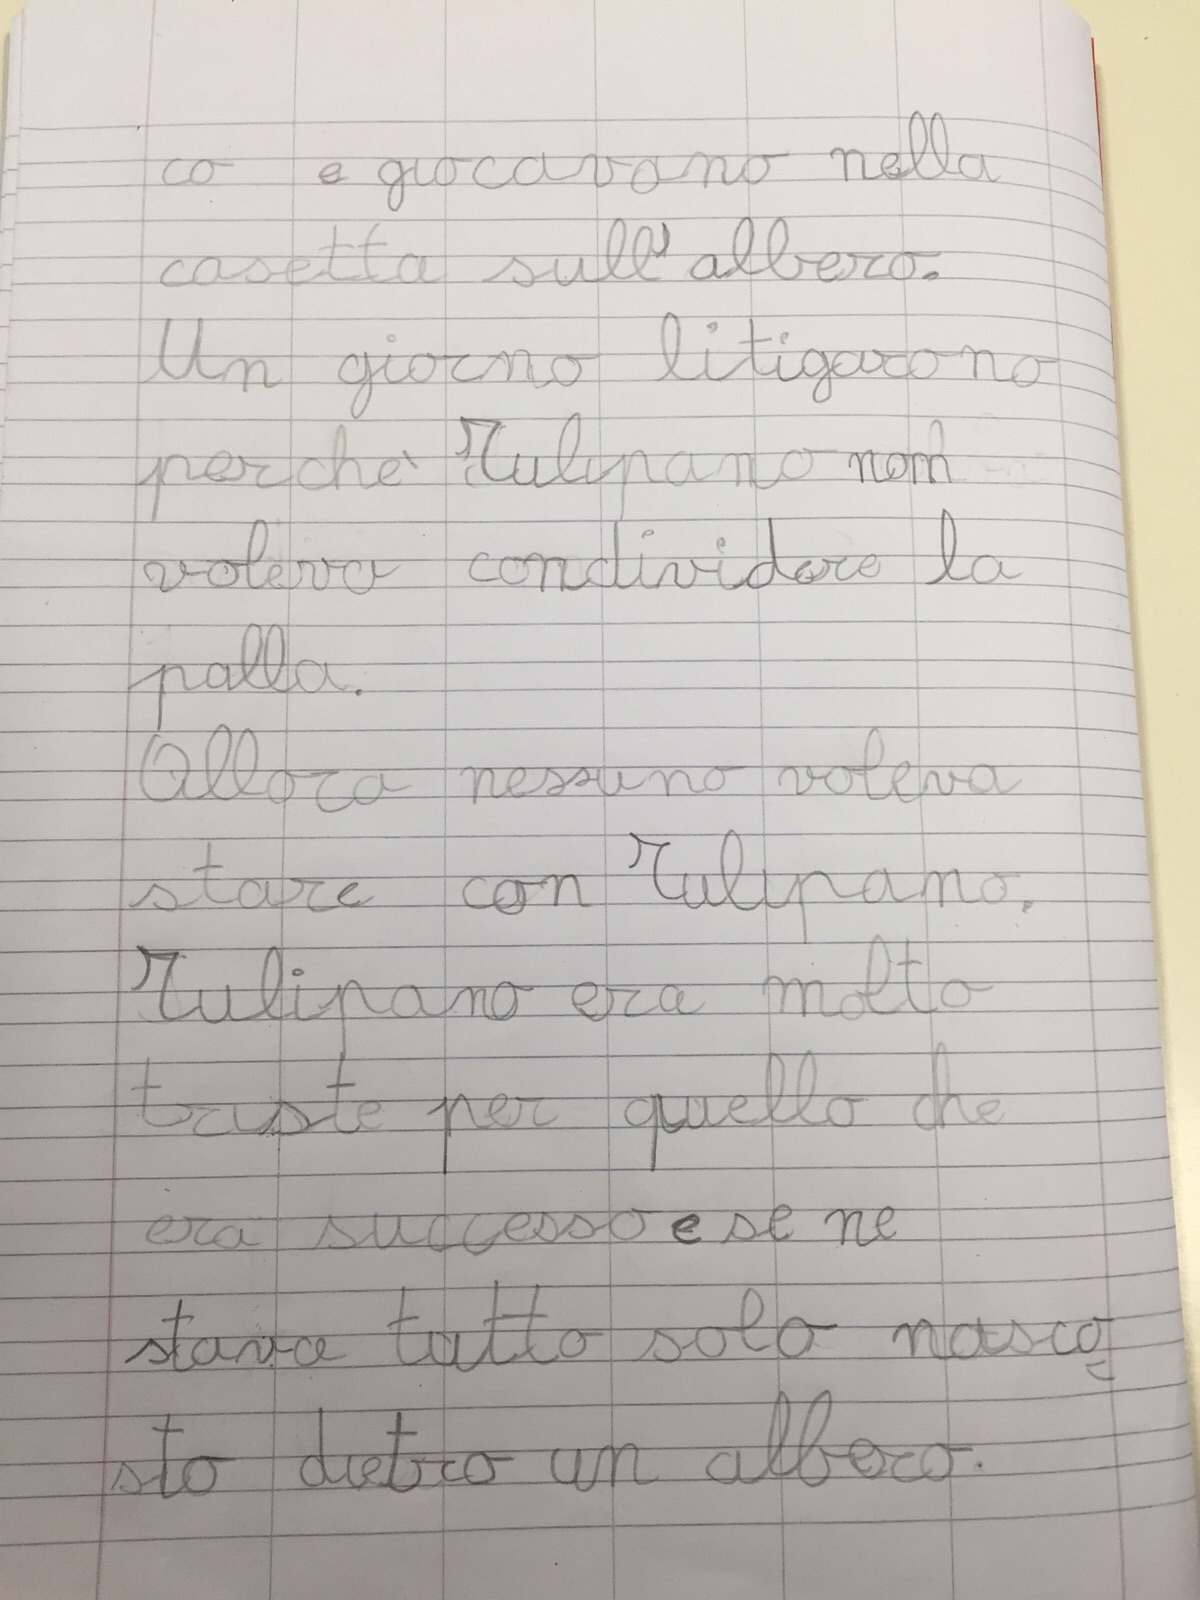 co e giocavano nella
casetta sull'albero.
Un giorno litigarono
perchè Tulipano non
voleva condividere la
palla.
Allora nessuno voleva
stare con Tulipano.
Tulipano era molto
triste per quello che
era successo e se ne
stava tutto solo nasco
sto dietro un albero.